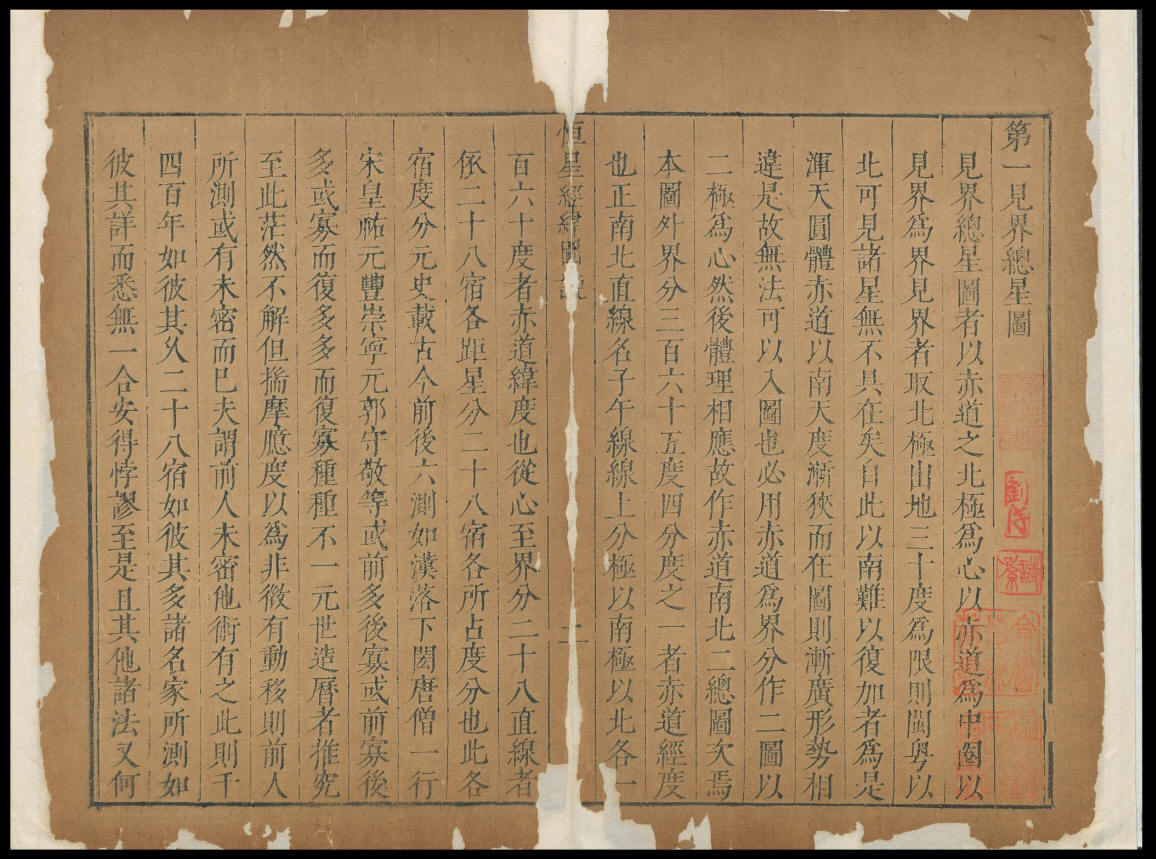 第一見界總星圖
見界總星圖者以赤道之北極爲心以赤道爲中圈以
見界爲界見界者取北極出地三十度爲限則閩粤以
北可見諸星無不具在矣自此以南難以復加者爲是
渾天圓體赤道以南天度漸狹而在圖則漸廣形勢相
違是故無法可以入圖也必用赤道爲界分作二圖以
二極爲心然後體理相應故作赤道南北二總圖次焉
本圖外界分三百六十五度四分度之一者赤道經度
也正南北直線名子午線線上分極以南極以北各一
恒星經緯圖說
二
百六十度者赤道緯度也從心至界分二十八直線者
依二十八宿各距星分二十八宿各所占度分也此各
宿度分元史載古今前後六測如漢落下閎唐僧一行
宋皇祐元豐崇寧元郭守敬等或前多後寡或前寡後
多或寡而復多多而復寡種種不一元世造曆者推究
至此茫然不解但揣摩臆度以爲非微有動移則前人
所測或有未密而已夫謂前人未密他術有之此則千
四百年如彼其久二十八宿如彼其多諸名家所測如
彼其詳而悉無一合安得悖謬至是且其他諸法又何